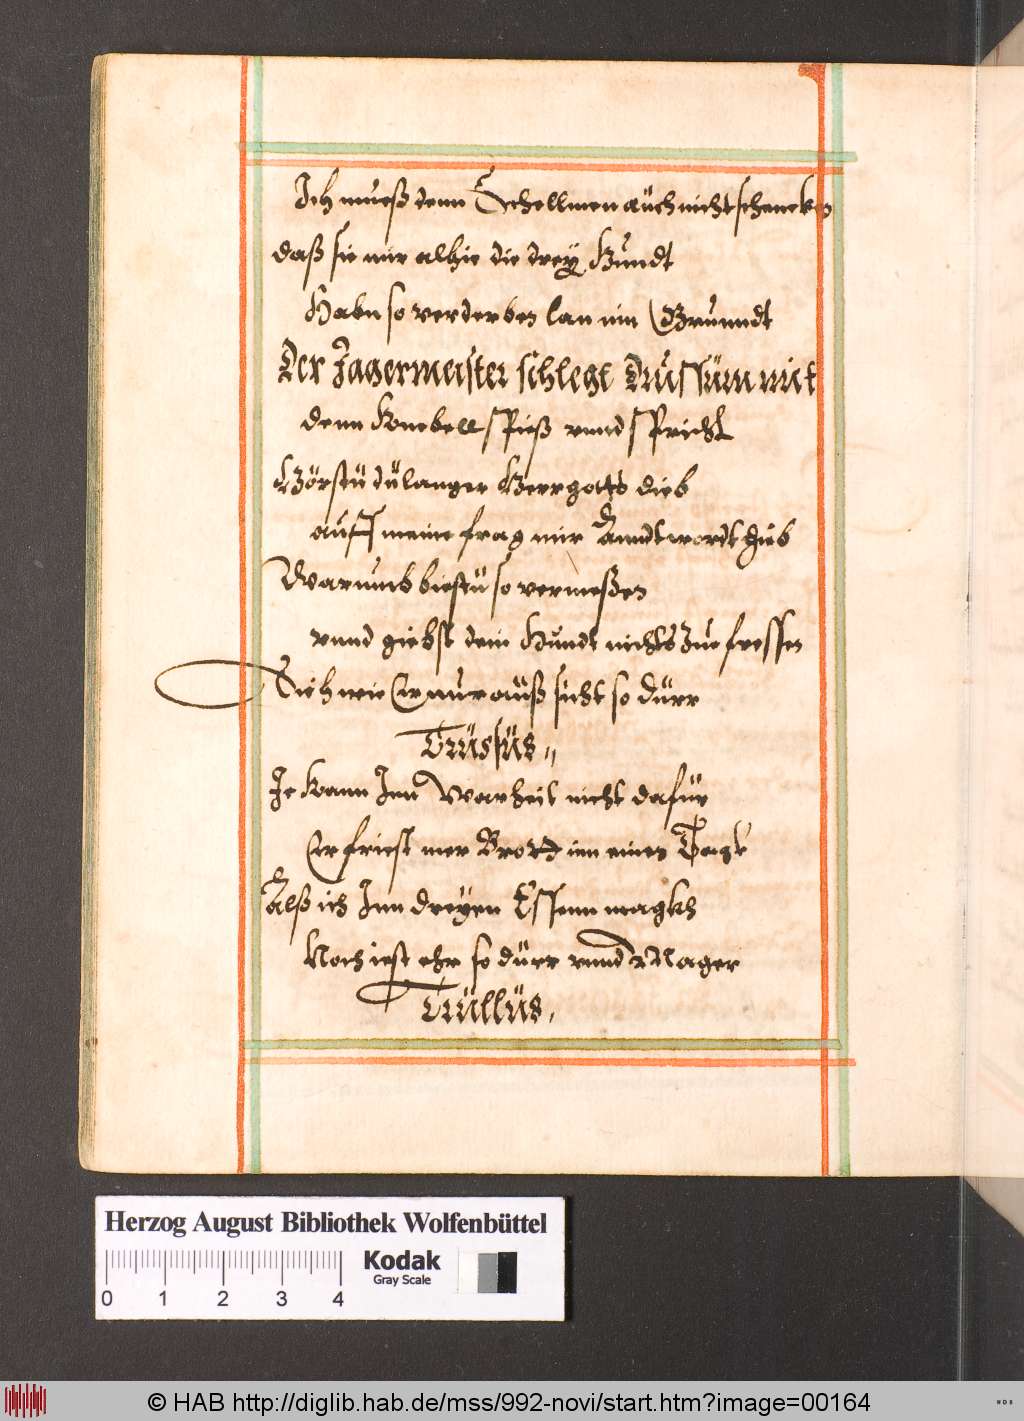 Ich mueß denn Schellmen aüch nicht schencken
daß sie mir alhie die drey Hundt
Habn so verderben lan im Grunndt
Der Jagermeister schlegt Drussüm mit
denn Knebellspieß vnnd spricht
Hörstü dü langer Herrgotts dieb
auff meine frag mir Anndtwordt gieb
Warumb biestü so vermeßen
vnnd giebst dem Hundt nichts zue fressen
Sieh wie Er nur aüß sicht so dürr
Drüssüs
Je kann Inn Warheit nicht dafür
Er friest mer Brott inn einen Tagk
Alß ich Inn dreyen Essenn magkh
Noch iest ehr so dürr vnnd Mager
Trüllüs
Herzog August Bibliothek Wolfenbüttel
Kodak
Gray Scale
0 1 2 3 4
© HAB http://diglib.hab.de/mss/992-novi/start.htm?image=00164